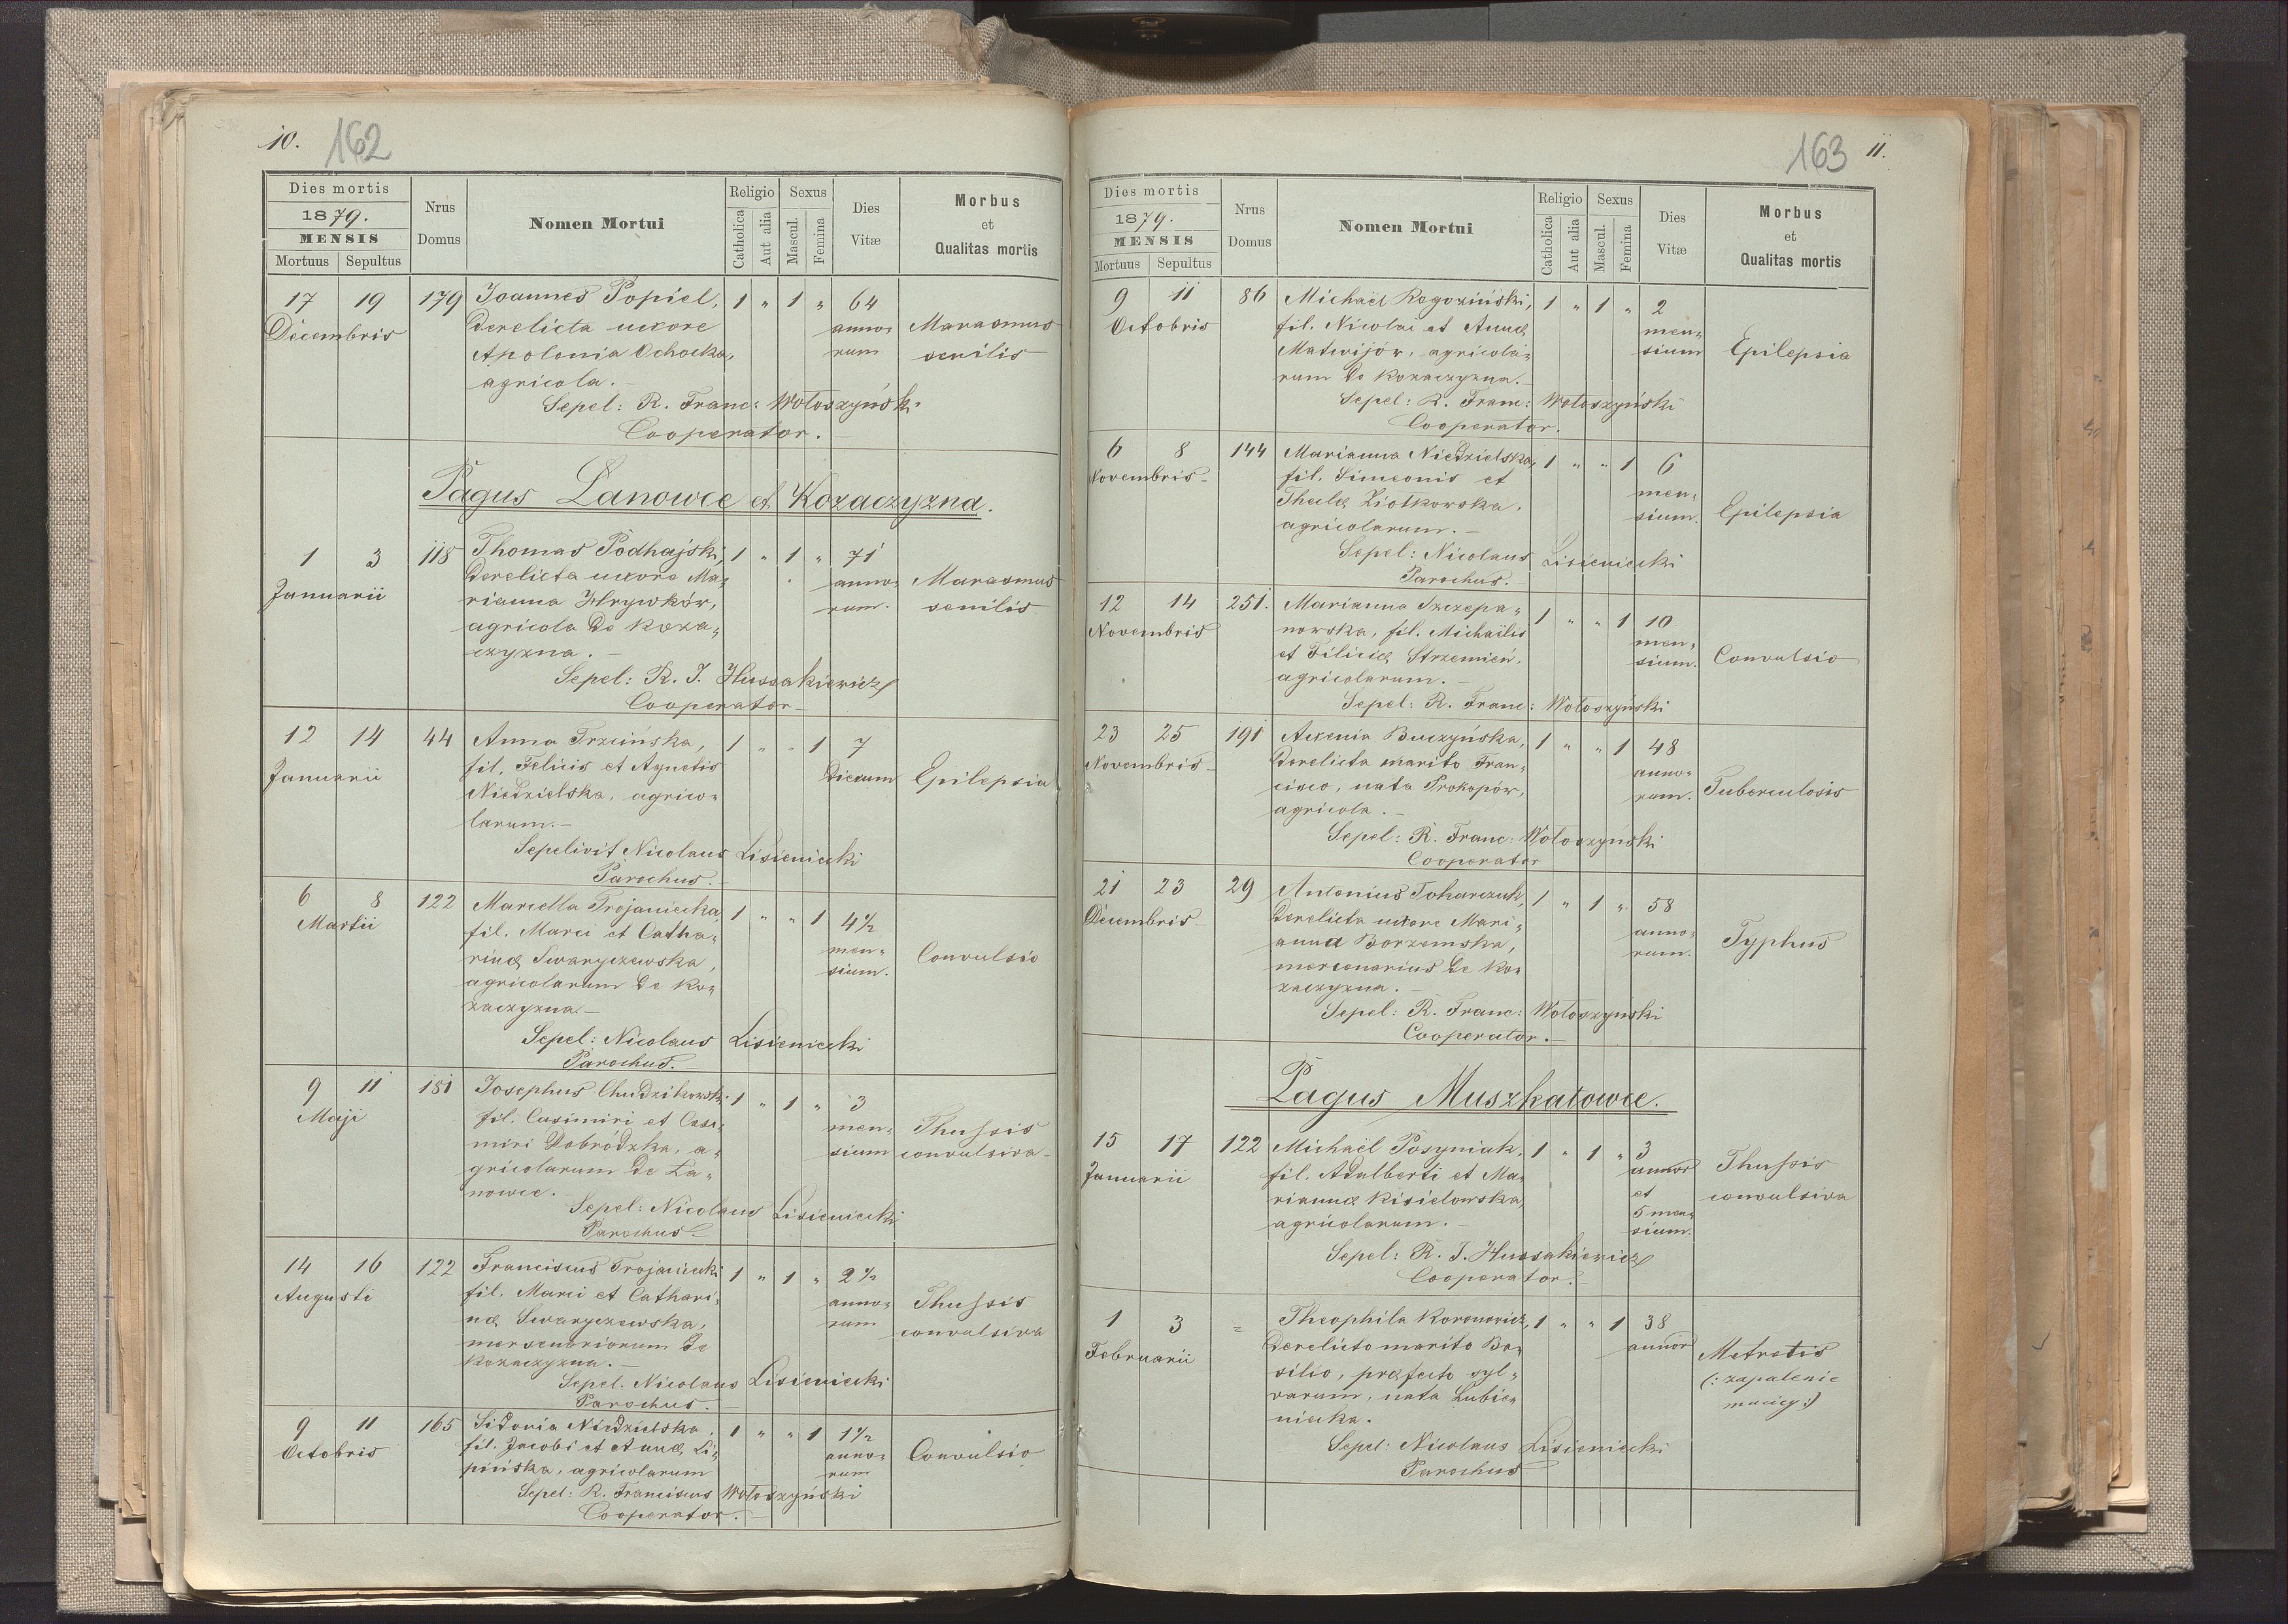 10. 162
Dies mortis
1879.
MENSIS
Mortuus Sepultus
Nrus
Domus
Nomen Mortui
Religio
Catholica
Aut alia
Sexus
Mascul.
Femina
Dies
Vitæ
Morbus
et
Qualitas mortis
17 19 179 Joannes Popiel, 1 " 1 " 64
Decembris derelicta uxore anno= Marasmus
Apolonia Ochocka, rum senilis
agricola.—
Sepel: R. Franc: Wołoszyński
Cooperator.
Pagus Lanowce et Kozaczyzna.
1 3 118 Thomas Podhajski, 1 " 1 " 71
Januarii derelicta uxore Ma= anno= Marasmus
rianna Hrywków, rum. senilis
agricola de Koza=
czyzna.—
Sepel: R. J. Hussakiewicz
Cooperator—
12 14 44 Anna Trzcińska, 1 " " 1 7
Januarii fil. Felicis et Agnetis dierum Epilepsia
Niedzielska, agrico=
larum.—
Sepelivit Nicolaus Lisieniecki
Parochus.—
6 8 122 Marcella Trojaniecka, 1 " " 1 4½
Martii fil. Marci et Catha= men=
rinæ Swaryczewska, sium. Convulsio
agricolarum de Ko=
zaczyzna.—
Sepel: Nicolaus Lisieniecki
Parochus.—
9 11 181 Josephus Chudzikowski 1 " 1 " 3
Maji fil. Casimiri et Casi= men= Thussis
miri Dobródzka, a= sium convulsiva—
gricolarum de La=
nowce.—
Sepel: Nicolaus Lisieniecki
Parochus—
14 16 122 Franciscus Trojaniecki 1 " 1 " 2½
Augusti fil. Marci et Cathari= anno= Thussis
næ Swaryczewska, rum convulsiva
mersenariorum de
Kozaczyzna.—
Sepel. Nicolaus Lisieniecki
Parochus.—
9 11 165 Sidonia Niedzielska, 1 " " 1 1½
Octobris fil. Jacobi et Annæ Li= anno= Convulsio
pińska, agricolarum rum
Sepel: R. Franciscus Wołoszyński
Cooperator.—
163 11.
Dies mortis
1879.
MENSIS
Mortuus Sepultus
Nrus
Domus
Nomen Mortui
Religio
Catholica
Aut alia
Sexus
Mascul.
Femina
Dies
Vitæ
Morbus
et
Qualitas mortis
9 11 86 Michaël Rogoziński, 1 " 1 " 2
Octobris fil. Nicolai et Annæ men=
Matwijów, agricola= sium Epilepsia
rum de Kozaczyzna.—
Sepel: R. Franc: Wołoszyński
Cooperator.
6 8 144 Marianna Niedzielska, 1 " " 1 6
Novembris— fil. Simeonis et men=
Theclæ Ziółkowska, sium. Epilepsia
agricolarum.—
Sepel: Nicolaus Lisieniecki
Parochus.—
12 14 251. Marianna Szczepa= 1 " " 1 10
Novembris nowska, fil. Michaëlis men=
et Filiciæ Strzemień, sium. Convulsio
agricolarum.—
Sepel: R. Franc: Wołoszyński
23 25 191 Auxenia Buczyńska, 1 " " 1 48
Novembris— derelicta marito Fran= anno=
cisco, nata Prokopów, rum. Tuberculosis
agricola.—
Sepel: R. Franc: Wołoszyński
Cooperator
21 23 29 Antonius Tokarczuk, 1 " 1 " 58
Decembris— derelicta uxore Mari= anno=
anna Borzemska, rum. Typhus
mercenarius de Ko=
zaczyzna.—
Sepel: R. Franc: Wołoszyński
Cooperator.—
Pagus Muszkatowce.
15 17 122 Michaël Posyniak, 1 " 1 " 3
Januarii fil. Adalberti et Ma= annor Thussis
riannæ Kisielowska, et convulsiva
agricolarum.— 5 men=
sium.
Sepel: R. J. Hussakiewicz
Cooperator.—
1 3 = Theophila Koronowicz, 1 " " 1 38
Februarii derelicto marito Ba= annor Metrotis
silio, præfecto syl= (: zapalenie
varum, nata Lubie= macicy :)
niecka.
Sepel: Nicolaus Lisieniecki
Parochus